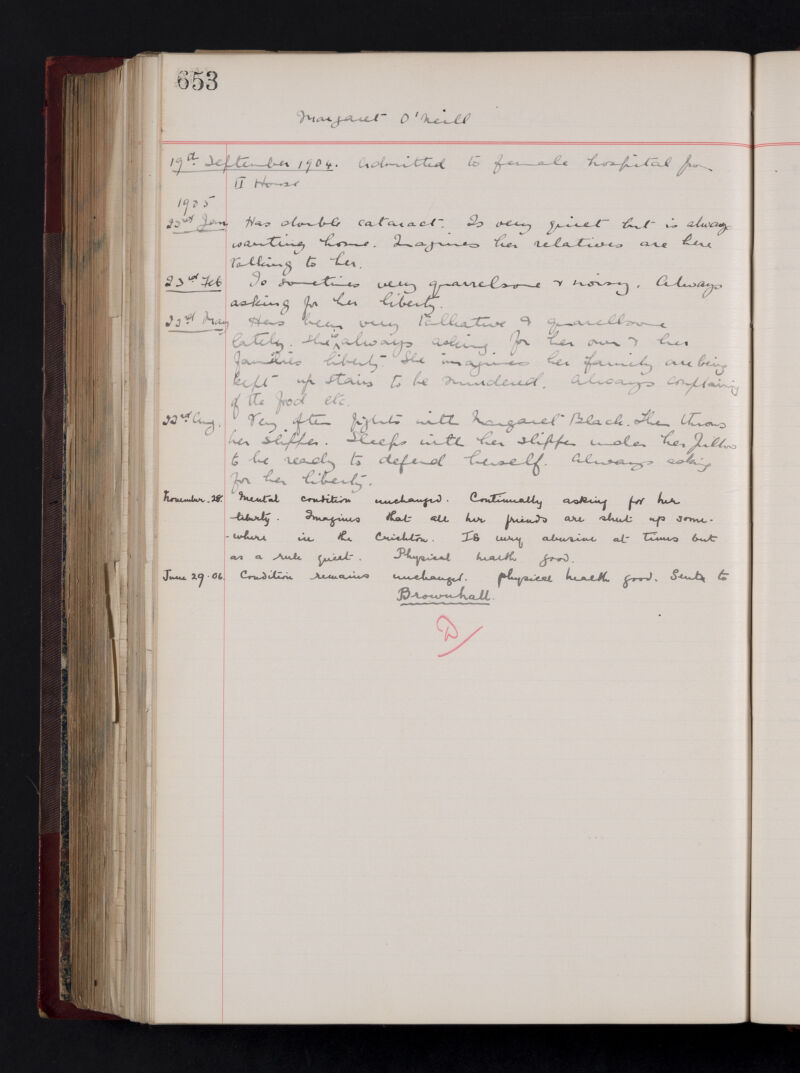 653
Margaret O'Neill
19th September 1904. Admitted to female hospital from
II House
1905
23rd Jan Has double cataract. Is very quiet but is always
wanting home. Imagines her relatives are here
talking to her.
23rd Feb Is sometimes very quarrelsome & noisy. Always
asking for her liberty.
23rd May Has been very talkative & quarellsome
lately. She is always asking for her own & her
families liberty. She imagines her family are being
kept up stairs to be murdered. Always complaining
of the food etc.
22nd Aug. Very often fights with Margaret Black. Then throws
her slipper. Sleeps with her slipper under her pillow
to be ready to defend herself. Always asking
for her liberty.
November. 28. Mental condition unchanged. Continually asking for her
liberty. Imagines that all her friends are shut up some-
-where in the Crichton. Is very abusive at times but
as a rule quiet. Physical health good.
June 29. 06. Condition remains unchanged. physical health good. Sent to
Brownhall.